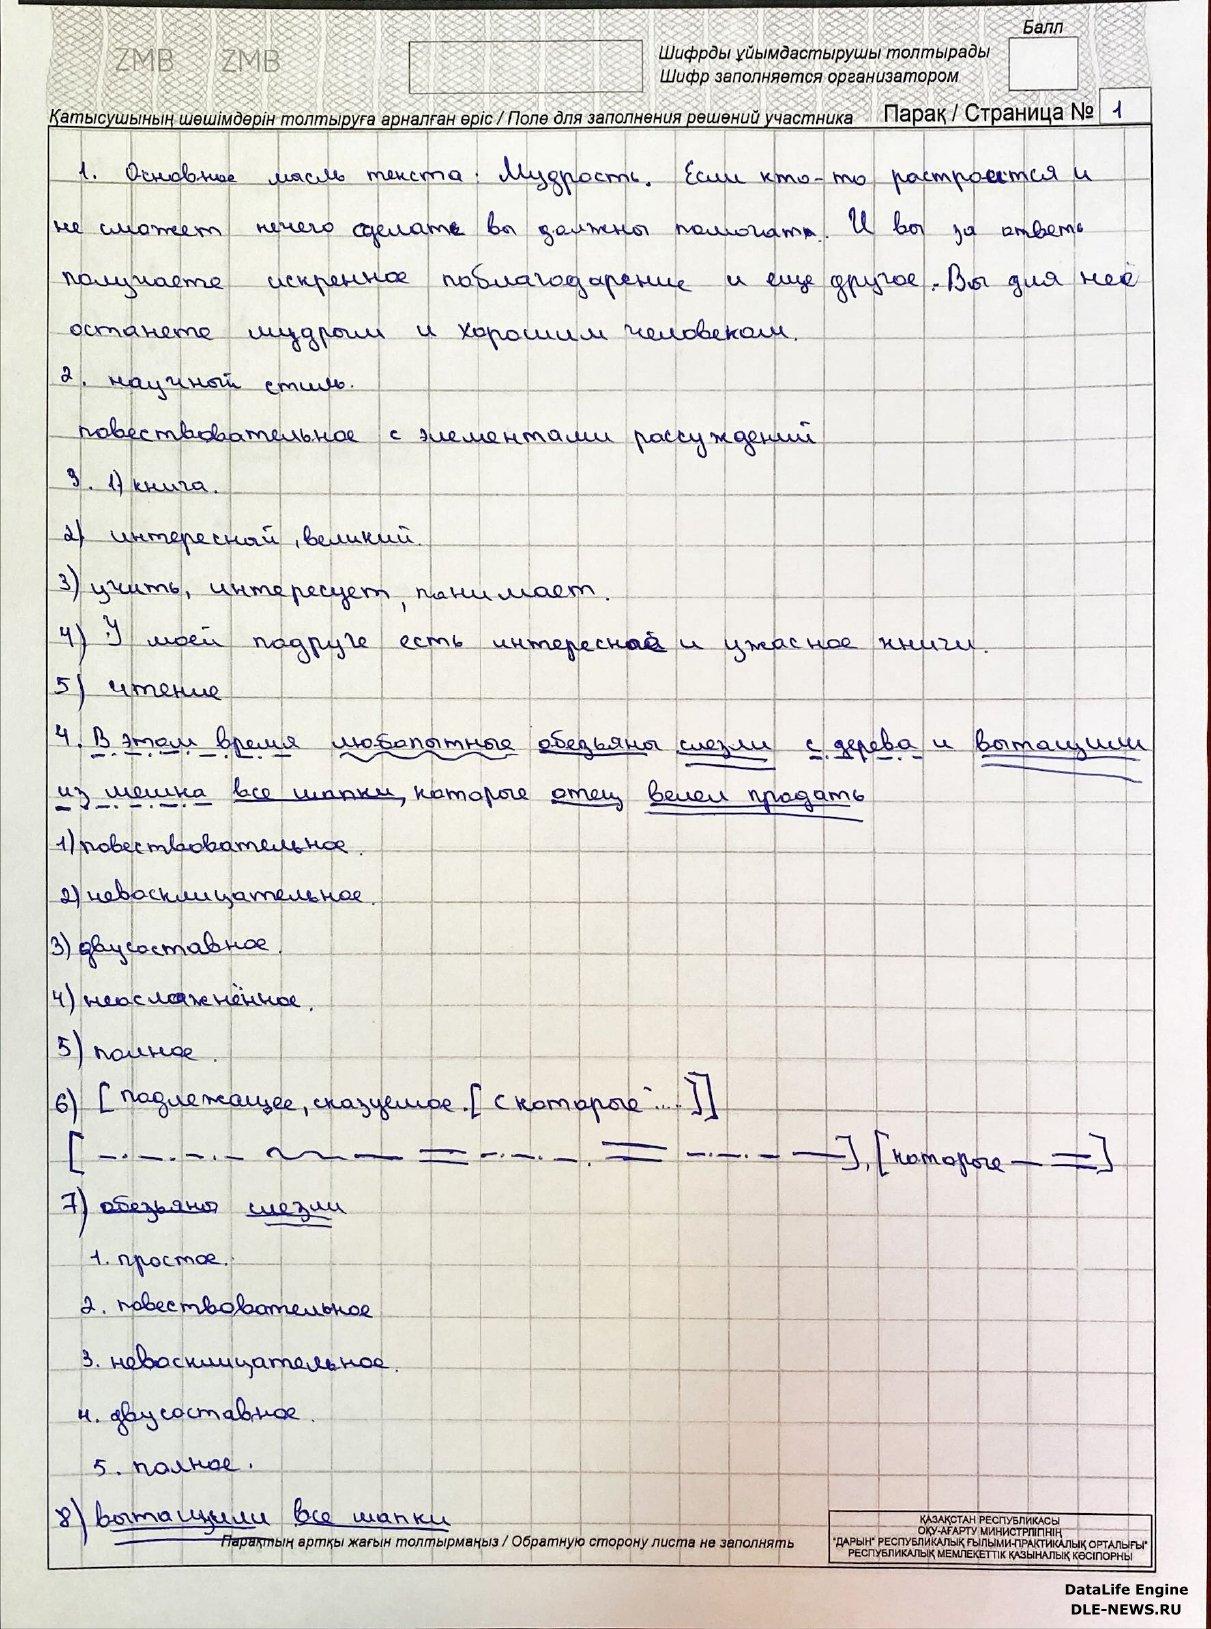 ZMB ZMB
Балл
Шифрды ұйымдастырушы толтырады
Шифр заполняется организатором
Қатысушының шешімдерін толтыруға арналған өріс / Поле для заполнения решений участника Парақ / Страница № 1
1. Основное мысль текста: Мудрость. Если кто-то растроится и
не сможет нечего сделать вы должны помогать. И вы за ответь
получаете искренное поблагодарение и еще другое. Вы для неё
останете мудрым и хорошим человеком.
2. научный стиль.
повествовательное с элементами рассуждений
3. 1) книга.
2) интересный, великий.
3) учить, интересует, панимает.
4) У моей подруге есть интересной и ужасное книги.
5) чтение
4. В этом время любопытные обезьяны слезли с дерева и вытащили
из мешка все шапки, которые отец велел продать
1) повествовательное.
2) невосклицательное.
3) двусоставное.
4) неосложнённое.
5) полное.
6) [подлежащее, сказуемое. [с которые ....]]
[ ], [которые ]
7) обезьяны слезли
1. простое.
2. повествовательное
3. невосклицательное.
4. двусоставное.
5. полное.
8) вытащили все шапки
Парақтың артқы жағын толтырмаңыз / Обратную сторону листа не заполнять
ҚАЗАҚСТАН РЕСПУБЛИКАСЫ
ОҚУ-АҒАРТУ МИНИСТРЛІГІНІҢ
"ДАРЫН" РЕСПУБЛИКАЛЫҚ ҒЫЛЫМИ-ПРАКТИКАЛЫҚ ОРТАЛЫҒЫ"
РЕСПУБЛИКАЛЫҚ МЕМЛЕКЕТТІК ҚАЗЫНАЛЫҚ КӘСІПОРНЫ
DataLife Engine
DLE-NEWS.RU